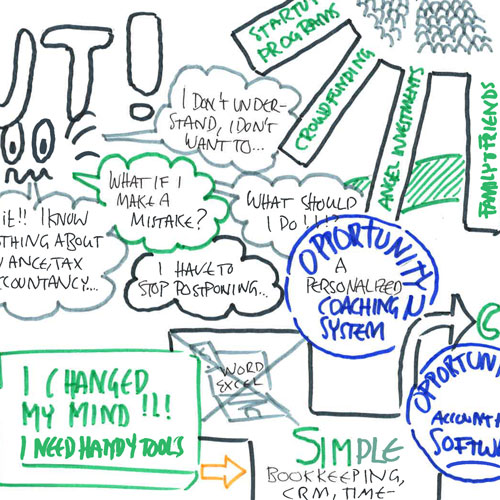 UT!
STARTUP
PROGRAMS
CROWDFUNDING
ANGEL INVESTMENTS
FAMILY & FRIENDS
I DON'T UNDER-
STAND, I DON'T
WANT TO...
WHAT IF I
MAKE A
MISTAKE?
WHAT SHOULD
I DO!!!?
IT!! I KNOW
THING ABOUT
ANCE, TAX
COUNTANCY....
I HAVE TO
STOP POSTPONING...
OPPORTUNITY N
A
PERSONALIZED
COACHING
SYSTEM
I CHANGED
MY MIND!!!
I NEED HANDY TOOLS
WORD
EXCEL
OPPORTUNI
ACCOUNTI
SOFTW
SIMPLE
BOOKKEEPING,
CRM, TIME-